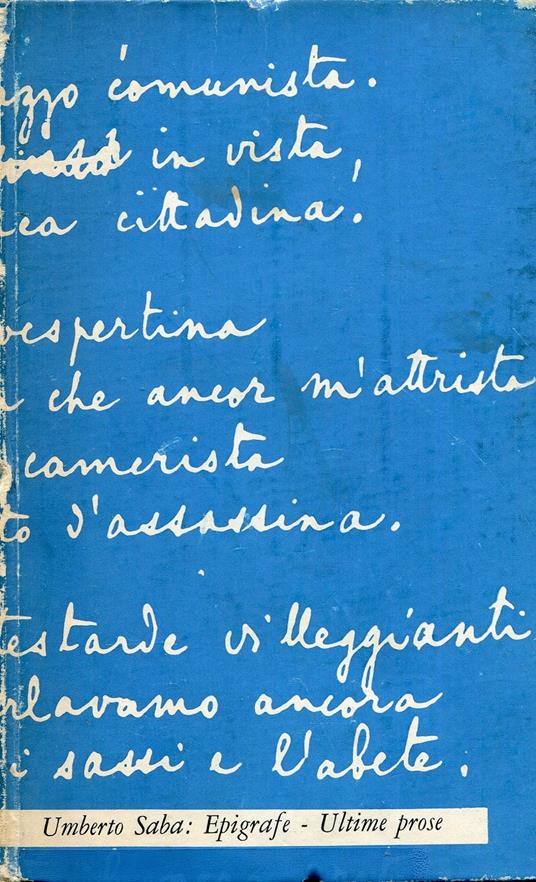 azzo comunista.
in vista,
ica cittadina.
vespertina
a che ancor m'attrista
camerista
to d'assassina.
testarde villeggianti
rlavamo ancora
i sassi e l'abete.
Umberto Saba: Epigrafe - Ultime prose